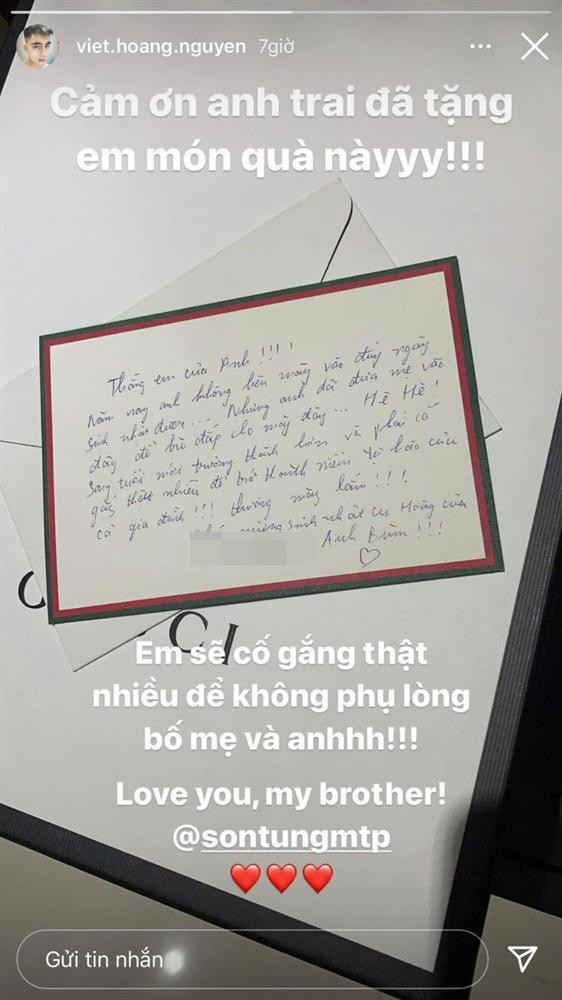 viet.hoang.nguyen 7giờ
Cảm ơn anh trai đã tặng
em món quà nàyyy!!!
Thằng em của Anh !!!!
Năm nay anh không bên mày vào đúng ngày
sinh nhật được... Nhưng anh đã đưa mẹ vào
đây để bù đắp cho mày đây... Hê Hê!
Sang tuổi mới trưởng thành hơn và phải cố
gắng thật nhiều để trở thành niềm tự hào của
cả gia đình!!! thương mày lắm!!!
mừng sinh nhật Cu Hoàng của
Anh Bùm!!!
Em sẽ cố gắng thật
nhiều để không phụ lòng
bố mẹ và anhhh!!!
Love you, my brother!
@sontungmtp
Gửi tin nhắn